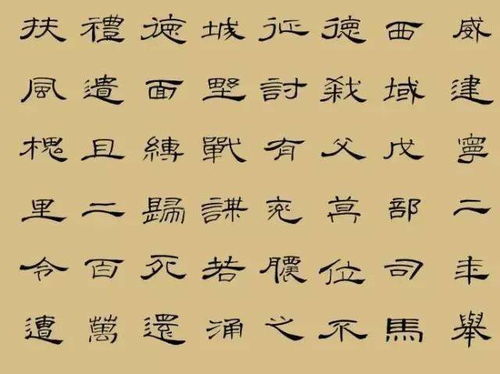 威建寧二年舉
西域戊部司馬
德殺父篡位不
征討有兖膿之
城野戰謀若涌
德面縛歸死還
禮遣且二百萬
扶風槐里令遭